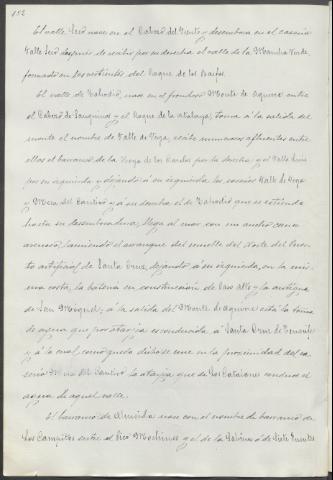 152
El valle Seco nace en el Cabezo del Viento y desemboca en el caserio
Valle Seco despues de recibir por su derecha el valle de la Mancha
formado en las vertientes del Roque de los
El valle de Tahodio, nace en el frondoso Monte de Aguirre entre
el Cabezo de y el Roque de la Atalaya; toma á la salida del
monte el nombre de Valle de Vega, recibe numerosos afluentes entre
ellos el barranco de la Vega de las por la derecha, y el Valle
por su izquierda, y dejando á su izquierda los caserios Valle de Vega
y del Camino y á su derecha el de Tahodio que se estiende
hasta su desembocadura; llega al mar con un ancho cauce
arenoso, lamiendo el arranque del muelle del Norte del Puer-
to artificial de Santa Cruz, dejando á su izquierda, en la mis-
ma costa, la bateria en construcción de Paso Alto y la antigua
de San Miguel; á la salida del Monte de Aguirre está la toma
de agua que por atarjea es conducida á Santa Cruz de Tenerife
y á la cual, como queda dicho se une en la proximidad del ca-
serio del Camino la atarjea que de Los Catalanes conduce el
agua de aquel valle.
El barranco de Almeida nace con el nombre de barranco de
Los Campitos entre el Pico y el de la ó de Siete Fuentes